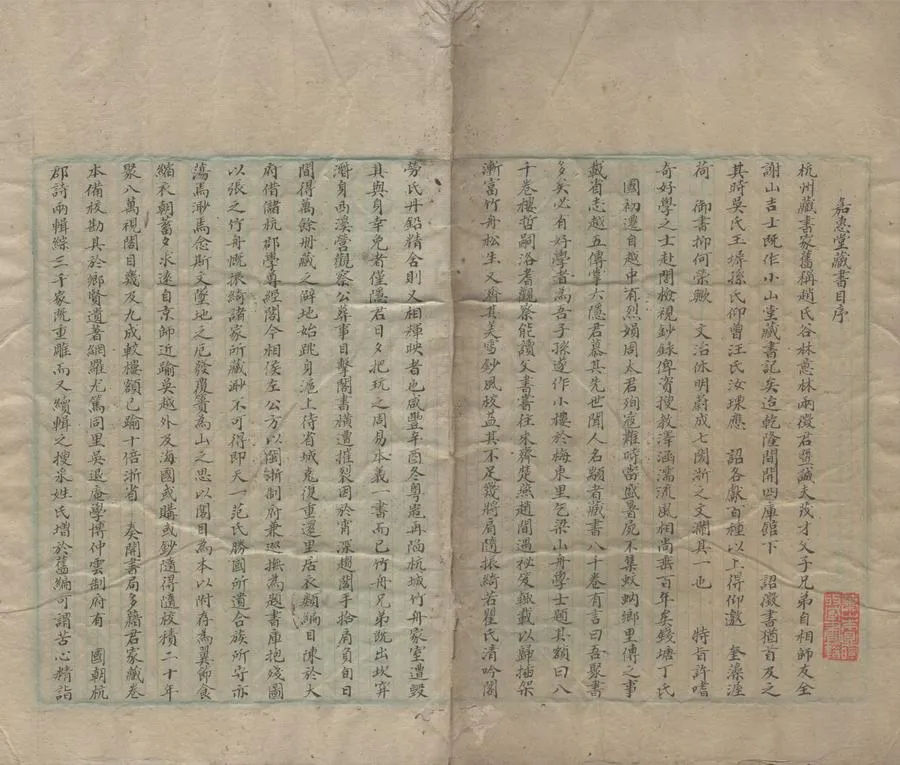 嘉惠堂藏書目序
杭州藏書家舊稱趙氏谷林意林兩徵君暨誠夫茂才父子兄弟自相師友全
謝山吉士既作小山堂藏書記矣迨乾隆間開四庫館下 詔徵書猶首及之
其時吳氏玉墀孫氏仰曾汪氏汝瑮應 詔各獻百種以上得仰邀 奎藻渥
荷 御書抑何榮歟 文治休明蔚成七閣浙之文瀾其一也 特旨許嗜
奇好學之士赴閣檢視鈔錄俾資搜教澤涵濡流風相尚垂百年矣錢塘丁氏
國初遷自越中有烈婦周太君殉寇難時當盛暑屍不集蚊蚋鄉里傳之事
載省志越五傳掌六隱君慕其先世聞人名顗者藏書八千卷有言曰吾聚書
多矣必有好學者為吾子孫遂作小樓於梅東里乞梁山舟學士題其額曰八
千卷樓哲嗣洛耆觀察能讀父書書往來齊楚燕趙間遇秘笈輒載以歸插架
漸富竹舟松生又濟其美雪鈔風校益其不足幾將肩隨振綺若瞿氏清吟閣
勞氏丹鉛精舍則又相輝映者也咸豐辛酉冬粵匪再陷杭城竹舟家室遭毀
其與身幸免者僅隱君日夕把玩之周易本義一書而已竹舟兄弟既出坎窞
潛身西溪營觀察公葬事目擊閣書橫遭摧裂因於宵深趨閣手拾肩負旬日
間得萬餘冊藏之僻地始跳身滬上待省城克復重還里居衣類編目陳於大
府借儲杭郡學尊經閣今相侯左公方以閩浙制府兼巡撫為題書庫抱殘圖
以張之竹舟慨振綺諸家所藏渺不可得即天一范氏勝國所遺合族所守亦
蕩焉渺焉念斯文墜地之厄發覆簣為山之思以閣目為本以附存為翼節食
縮衣朝蓄夕求遠自京師近踰吳越外及海國或購或鈔隨得隨校積二十年
聚八萬視閣目幾及九成較樓額已踰十倍浙省 奏開書局多藉君家藏卷
本備校勘其於鄉賢遺著網羅尤篤同里吳退庵學博仲雲制府有 國朝杭
郡詩兩輯綜三千家既重雕而又續輯之搜采姓氏增於舊編可謂苦心精詣